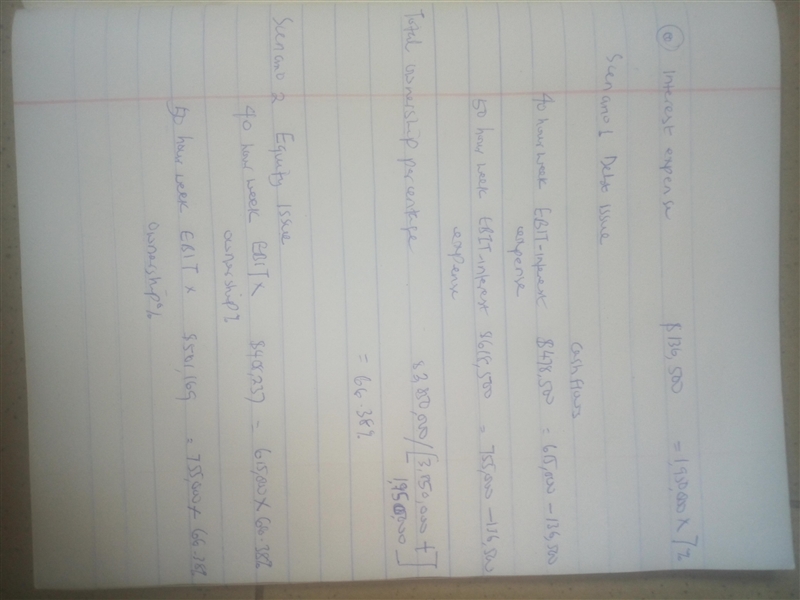 a Interest expense $136,500 = 1,950,000 x 7%
Scenario 1 Debt Issue
Cash flows
40 hour week EBIT-interest $478,500 = 615,000 - 136,500
expense
50 hour week EBIT-interest $618,500 = 755,000 - 136,500
expense
Total ownership percentage 3,850,000/[3,850,000 +
1,950,000]
= 66.38%
Scenario 2 Equity Issue
40 hour week EBIT x $408,237 = 615,000 x 66.38%
ownership%
50 hour week EBIT x $501,169 = 755,000 x 66.38%
ownership%